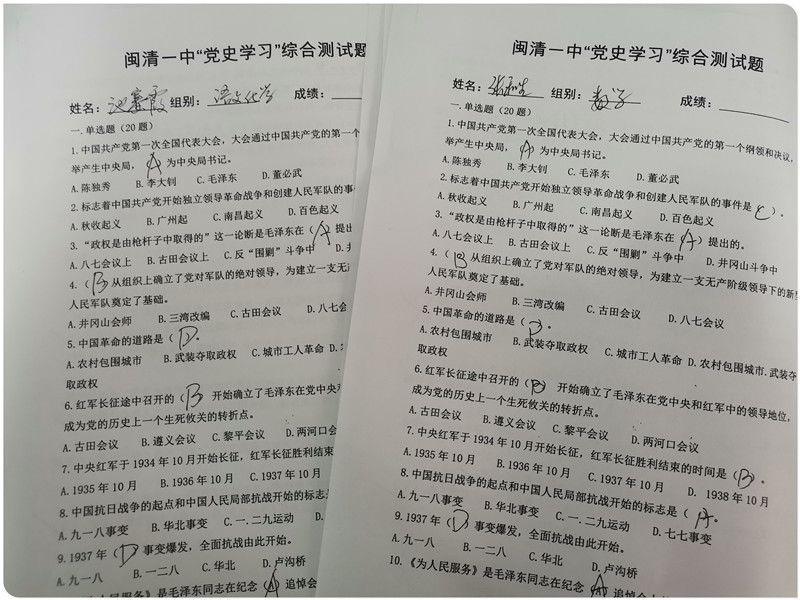 闽清一中“党史学习”综合测试题
姓名： 组别：语文化学 成绩：
一.单选题（20 题）
1.中国共产党第一次全国代表大会，大会通过中国共产党的第一个
举产生中央局，（A）为中央局书记。
A.陈独秀 B.李大钊 C.毛泽东 D.董必武
2.标志着中国共产党开始独立领导革命战争和创建人民军队的事
A.秋收起义 B.广州起 C.南昌起义 D.百色起义
3.“政权是由枪杆子中取得的”这一论断是毛泽东在（A）提出
A.八七会议上 B.古田会议上 C.反“围剿”斗争中 D.井
4.（B）从组织上确立了党对军队的绝对领导，为建立一支无
人民军队奠定了基础。
A.井冈山会师 B.三湾改编 C.古田会议 D.八七会
5.中国革命的道路是（D）。
A.农村包围城市 B.武装夺取政权 C.城市工人革命 D.
取政权
6.红军长征途中召开的（B）开始确立了毛泽东在党中央
成为党的历史上一个生死攸关的转折点。
A.古田会议 B.遵义会议 C.黎平会议 D.两河口会
7.中央红军于 1934 年 10 月开始长征，红军长征胜利结束的
A.1935 年 10 月 B.1936 年 10 月 C.1937 年 10 月
8.中国抗日战争的起点和中国人民局部抗战开始的标志是
A.九一八事变 B.华北事变 C.一.二九运动 D.
9.1937 年（D）事变爆发，全面抗战由此开始。
A.九一八 B.一二八 C.华北 D.卢沟桥
《为人民服务》是毛泽东同志在纪念（A）追悼会
闽清一中“党史学习”综合测试题
姓名： 组别：数学 成绩：
一.单选题（20 题）
1.中国共产党第一次全国代表大会，大会通过中国共产党的第一个纲领和决议，
举产生中央局，（A）为中央局书记。
A.陈独秀 B.李大钊 C.毛泽东 D.董必武
2.标志着中国共产党开始独立领导革命战争和创建人民军队的事件是（C）。
A.秋收起义 B.广州起 C.南昌起义 D.百色起义
3.“政权是由枪杆子中取得的”这一论断是毛泽东在（A）提出的。
A.八七会议上 B.古田会议上 C.反“围剿”斗争中 D.井冈山斗争中
4.（B）从组织上确立了党对军队的绝对领导，为建立一支无产阶级领导下的新
人民军队奠定了基础。
A.井冈山会师 B.三湾改编 C.古田会议 D.八七会议
5.中国革命的道路是（D）。
A.农村包围城市 B.武装夺取政权 C.城市工人革命 D.农村包围城市.武装
取政权
6.红军长征途中召开的（B）开始确立了毛泽东在党中央和红军中的领导地位，
成为党的历史上一个生死攸关的转折点。
A.古田会议 B.遵义会议 C.黎平会议 D.两河口会议
7.中央红军于 1934 年 10 月开始长征，红军长征胜利结束的时间是（B）。
A.1935 年 10 月 B.1936 年 10 月 C.1937 年 10 月 D. 1938 年 10 月
8.中国抗日战争的起点和中国人民局部抗战开始的标志是（A）。
A.九一八事变 B.华北事变 C.一.二九运动 D.七七事变
9.1937 年（D）事变爆发，全面抗战由此开始。
A.九一八 B.一二八 C.华北 D.卢沟桥
10.《为人民服务》是毛泽东同志在纪念（A）追悼会